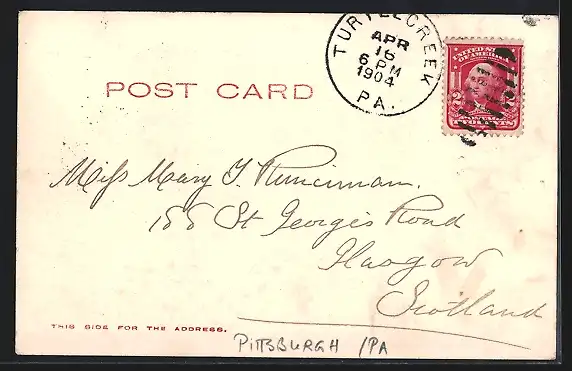 TURTLE CREEK
APR
16
6 PM
1904
PA.
UNITED STATES
OF AMERICA
POST CARD
2
POSTAGE
TWO CENTS
Miss Mary T. Runciman.
188 St Georges Road
Glasgow
Scotland
THIS SIDE FOR THE ADDRESS.
PITTSBURGH /PA